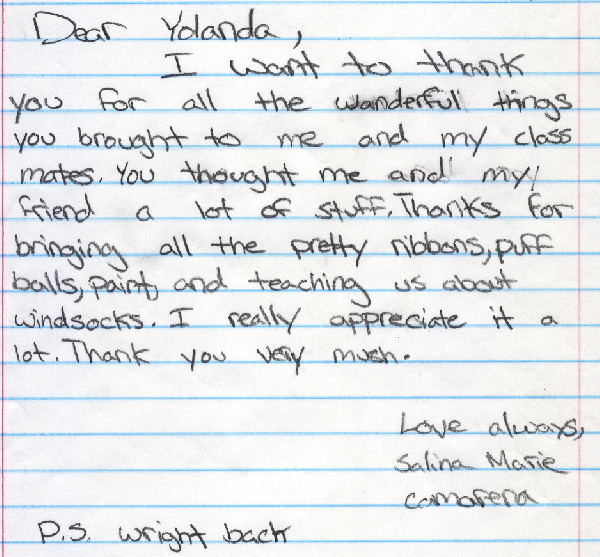 Dear Yolanda,
I want to thank
you for all the wanderful things
you brought to me and my class
mates. You thought me and my
friend a lot of stuff. Thanks for
bringing all the pretty ribbons, puff
balls, paint, and teaching us about
windsocks. I really appreciate it a
lot. Thank you very much.
Love always,
Salina Marie
Camarena
P.S. wright back